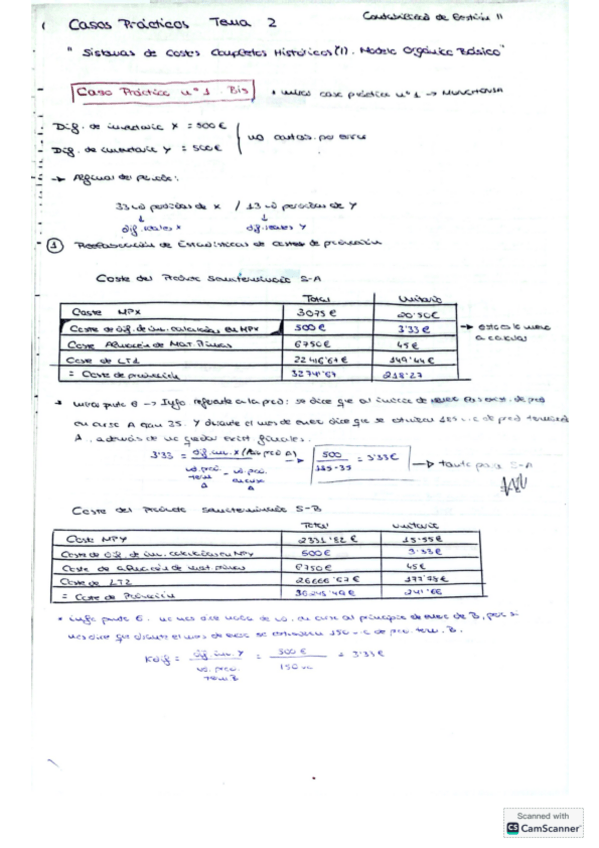 Casos Prácticos Tema 2
Contabilidad de Gestión II
"Sistemas de Costes Completos Históricos (I). Modelo Orgánico Básico"
Caso Práctico nº 1 Bis
• mirar caso práctico nº 1 →
Dif. de inventario X = 500€
Dif. de inventario Y = 500€
no contab. por error
→ Al final del período:
33 perdidas de x / 13 perdidas de y
dif. totales x dif. totales y
① de Estadísticas de costes de producción
Coste del Producto Semiterminado S-A
Total Unitario
Coste MPX 3075€ 20'50€
Coste de dif. de inv. calculadas en MPX 500€ 3'33€
→ esto es lo nuevo a calcular
Coste Afluación de Mat. Primas 6750€ 45€
Coste de LT1 22416'67€ 149'44€
= Coste de producción 32741'67 218'27
→ mirar punto 6 → Info referente a la prod: se dice que al inicio de enero las exist. de prod
en curso A eran 25. Y durante el mes de enero dice que se de prod. terminad
A, además de no quedar exist finales.
3'33 = dif. inv. X (A)
ud. prod. term A - ud. prod. en curso A
500 = 3'33€
→ tanto para S-A
Coste del Producto Semiterminado S-B
Total Unitario
Coste MPY 2331'82€ 15'55€
Coste de dif. de inv. calculadas en MPY 500€ 3'33€
Coste de afluación de mat. primas 6750€ 45€
Coste de LT2 26666'67€ 177'78€
= Coste de Producción 241'66
• info punto 6. no nos dice nada de ud. en curso al principio de enero de B, pero si
nos dice que durante el mes de enero se 150 de pro. term. B.
Kdif = dif. inv. Y = 500€ = 3'33€
ud. prod. term B 150
Scanned with
CS CamScanner